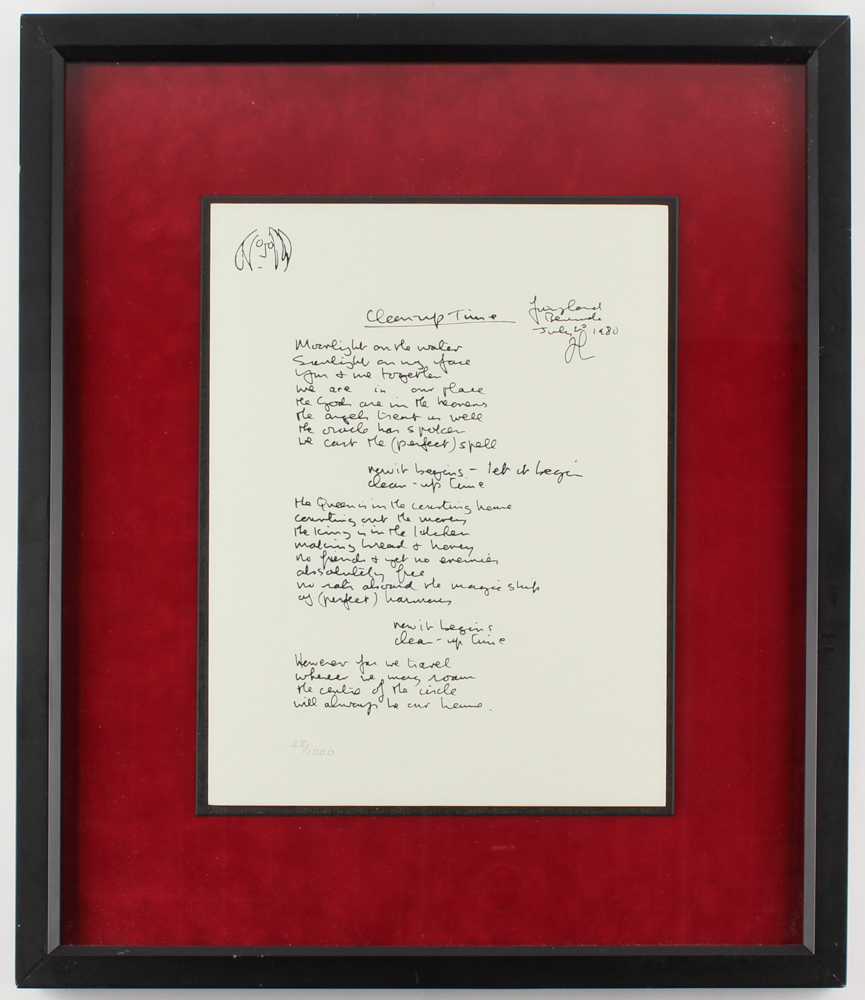 Cleanup Time
Fairyland
Bermuda
July 20 1980
JL
Moonlight on the water
Sunlight on my face
You + me together
we are in our place
the Gods are in the heavens
the angels treat us well
the oracle has spoken
we cast the (perfect) spell
now it begins - let it begin
clean-up time
the Queen is in the counting house
counting out the money
the King is in the kitchen
making bread + honey
no friends + yet no enemies
absolutely free
no rats aboard the magic ship
of (perfect) harmony
now it begins
clean-up time
However far we travel
wherever we may roam
the centre of the circle
will always be our home.
28/1000